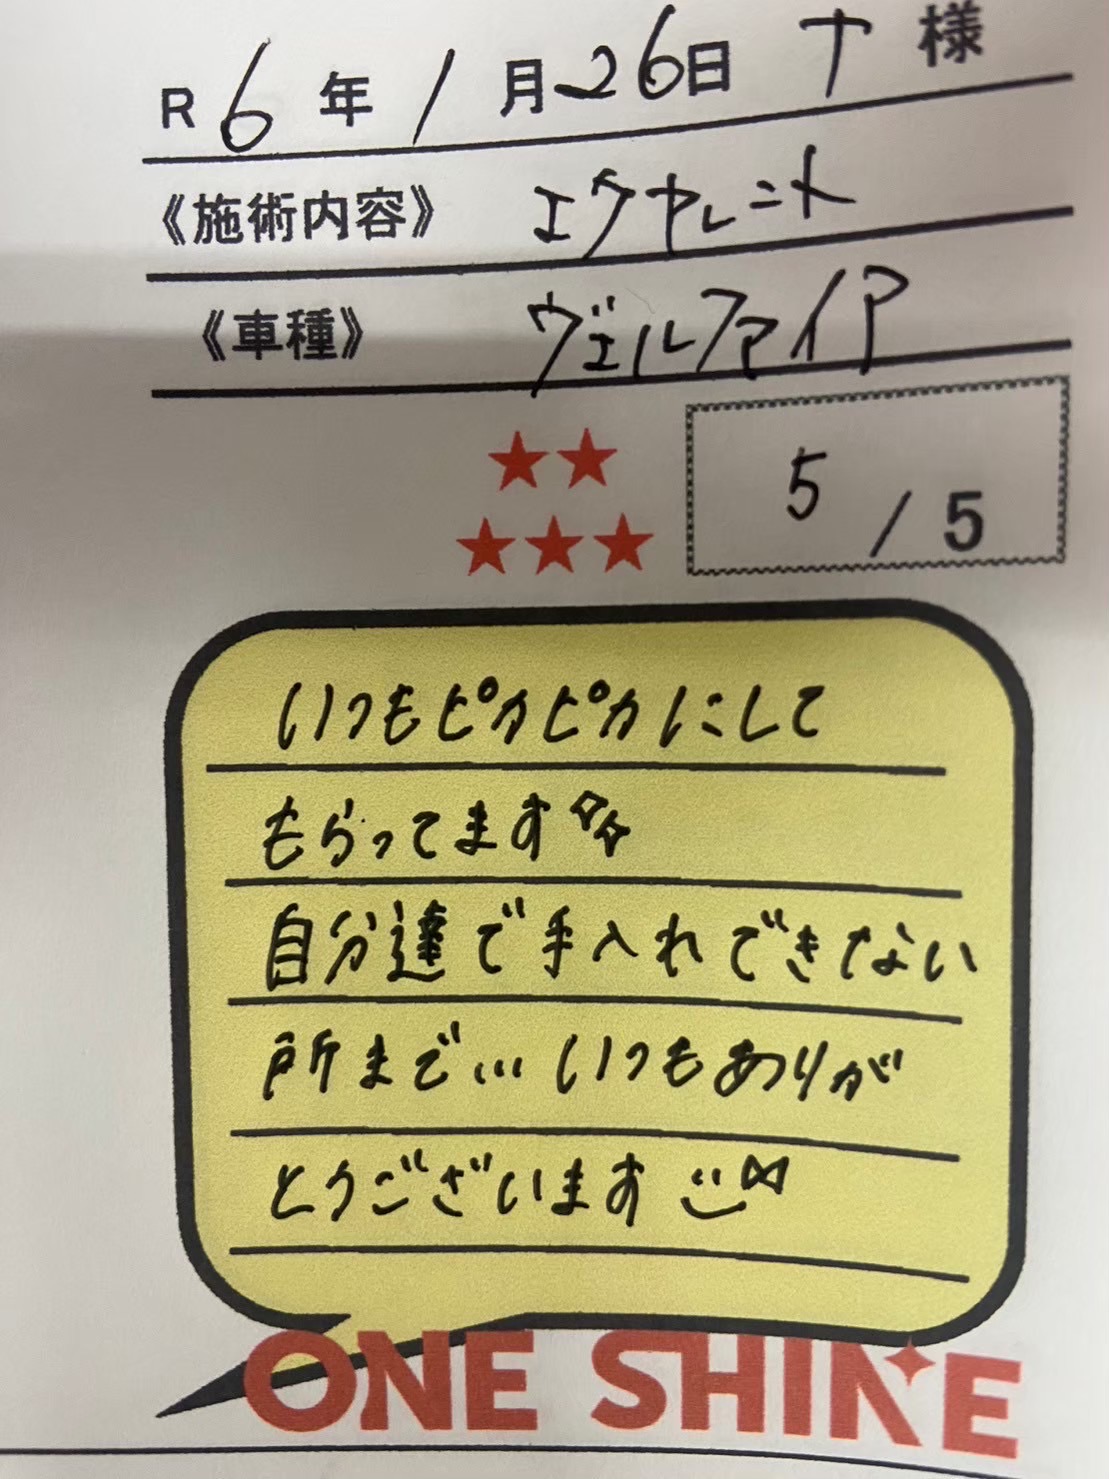 R 6 年 1 月 26 日 T 様
《施術内容》 エクセレント
《車種》 ヴェルファイア
5 / 5
いつもピカピカにして
もらってます
自分達で手入れできない
所まで… いつもありが
とうございます
ONE SHINE